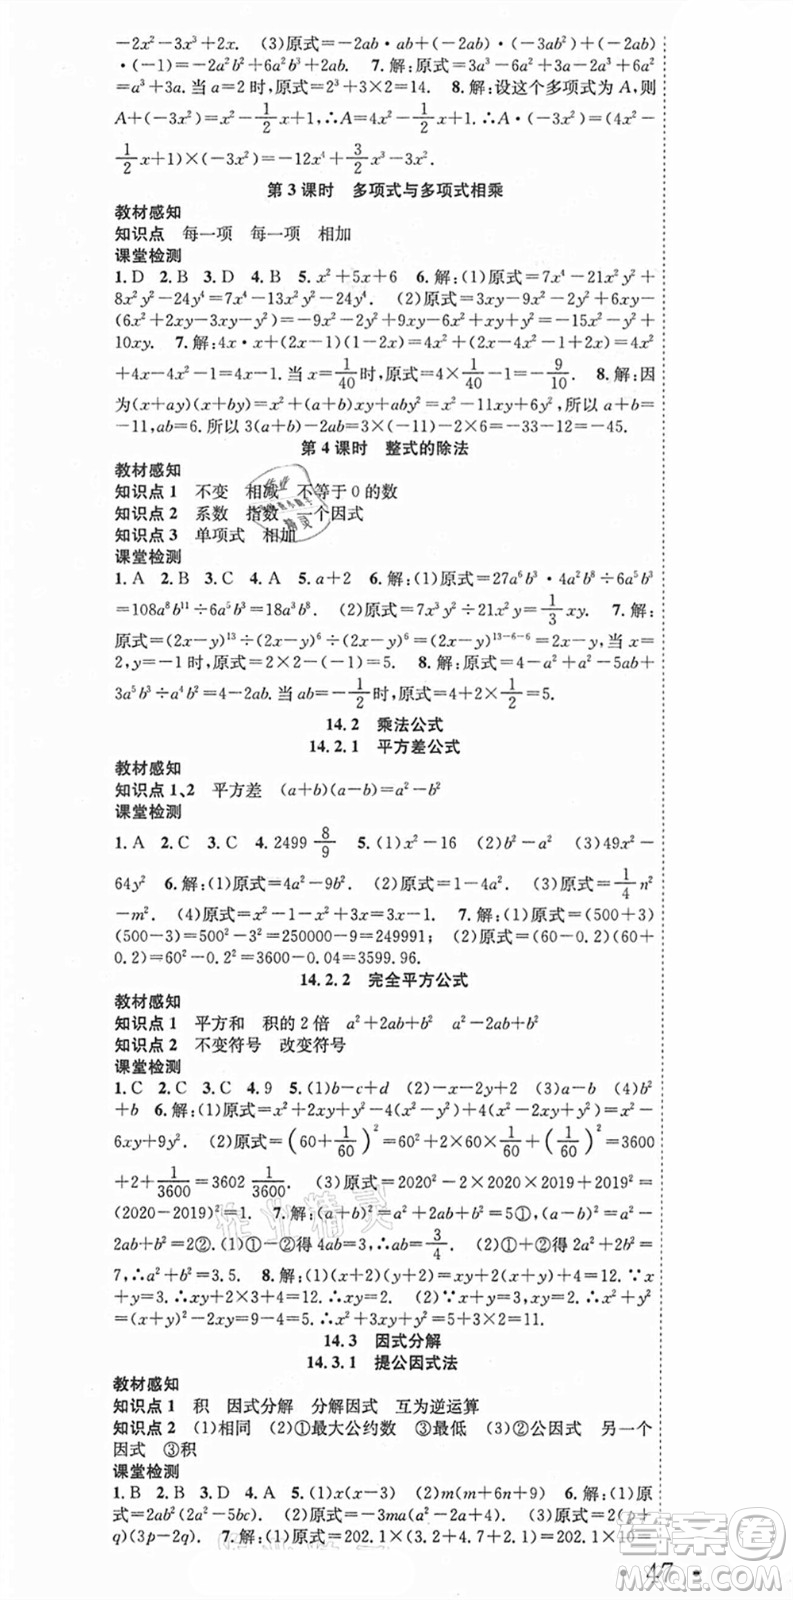 -2x²-3x³+2x. (3)原式=-2ab·ab+(-2ab)·(-3ab²)+(-2ab)
·(-1)=-2a²b²+6a²b³+2ab. 7.解:原式=3a³-6a²+3a-2a³+6a²
=a³+3a.当a=2时,原式=2³+3×2=14. 8.解:设这个多项式为A,则
A+(-3x²)=x²-1/2x+1,∴A=4x²-1/2x+1.∴A·(-3x²)=(4x²-
1/2x+1)×(-3x²)=-12x⁴+3/2x³-3x².
第3课时 多项式与多项式相乘
教材感知
知识点 每一项 每一项 相加
课堂检测
1.D 2.B 3.D 4.B 5.x²+5x+6 6.解:(1)原式=7x⁴-21x²y²+
8x²y²-24y⁴=7x⁴-13x²y²-24y⁴. (2)原式=3xy-9x²-y²+3xy-
(6x²+2xy-3xy-y²)=-9x²-2y²+6xy-6x²+xy+y²=-15x²-y²+
10xy. 7.解:4x·x+(2x-1)(1-2x)=4x²+(2x-4x²-1+2x)=4x²
+4x-4x²-1=4x-1.当x=1/40时,原式=4×1/40-1=-9/10. 8.解:因
为(x+ay)(x+by)=x²+(a+b)xy+aby²=x²-11xy+6y²,所以a+b=
-11,ab=6.所以3(a+b)-2ab=3×(-11)-2×6=-33-12=-45.
第4课时 整式的除法
教材感知
知识点1 不变 相减 不等于0的数
知识点2 系数 指数 一个因式
知识点3 单项式 相加
课堂检测
1.A 2.B 3.C 4.A 5.a+2 6.解:(1)原式=27a⁶b³·4a²b⁸÷6a⁵b³
=108a⁸b¹¹÷6a⁵b³=18a³b⁸. (2)原式=7x³y²÷21x²y=1/3xy. 7.解:
原式=(2x-y)¹³÷(2x-y)⁶÷(2x-y)⁶=(2x-y)¹³⁻⁶⁻⁶=2x-y,当x=
2,y=-1时,原式=2×2-(-1)=5. 8.解:原式=4-a²+a²-5ab+
3a⁵b³÷a⁴b²=4-2ab.当ab=-1/2时,原式=4+2×1/2=5.
14.2 乘法公式
14.2.1 平方差公式
教材感知
知识点1、2 平方差 (a+b)(a-b)=a²-b²
课堂检测
1.A 2.C 3.C 4.2499 8/9 5.(1)x²-16 (2)b²-a² (3)49x²-
64y² 6.解:(1)原式=4a²-9b². (2)原式=1-4a². (3)原式=1/4n²
-m². (4)原式=x²-1-x²+3x=3x-1. 7.解:(1)原式=(500+3)
(500-3)=500²-3²=250000-9=249991; (2)原式=(60-0.2)(60+
0.2)=60²-0.2²=3600-0.04=3599.96.
14.2.2 完全平方公式
教材感知
知识点1 平方和 积的2倍 a²+2ab+b² a²-2ab+b²
知识点2 不变符号 改变符号
课堂检测
1.C 2.C 3.C 4.9 5.(1)b-c+d (2)-x-2y+2 (3)a-b (4)b²
+b 6.解:(1)原式=x²+2xy+y²-4(x²-y²)+4(x²-2xy+y²)=x²-
6xy+9y². (2)原式=(60+1/60)²=60²+2×60×1/60+(1/60)²=3600
+2+1/3600=3602 1/3600. (3)原式=2020²-2×2020×2019+2019²=
(2020-2019)²=1. 7.解:(a+b)²=a²+2ab+b²=5①,(a-b)²=a²-
2ab+b²=2②. (1)①-②得4ab=3,∴ab=3/4. (2)①+②得2a²+2b²=
7,∴a²+b²=3.5. 8.解:(1)(x+2)(y+2)=xy+2(x+y)+4=12.∵x
+y=3.∴xy+2×3+4=12.∴xy=2. (2)∵x+y=3,∴(x+y)²=9.∴
x²+y²+2xy=9.∴x²+y²=9-2xy=9-2×2=5.∴x²+3xy+y²=5+3×2=11.
14.3 因式分解
14.3.1 提公因式法
教材感知
知识点1 积 因式分解 分解因式 互为逆运算
知识点2 (1)相同 (2)①最大公约数 ③最低 (3)②公因式 另一个
因式 ③积
课堂检测
1.B 2.B 3.D 4.A 5.(1)x(x-3) (2)m(m+n+9) 6.解:(1)原
式=2ab²(2a²-5bc). (2)原式=-3ma(a²-2a+4). (3)原式=2(p+
q)(3p-2q). 7.解:(1)原式=202.1×(3.2+4.7+2.1)=202.1×10=
·47·